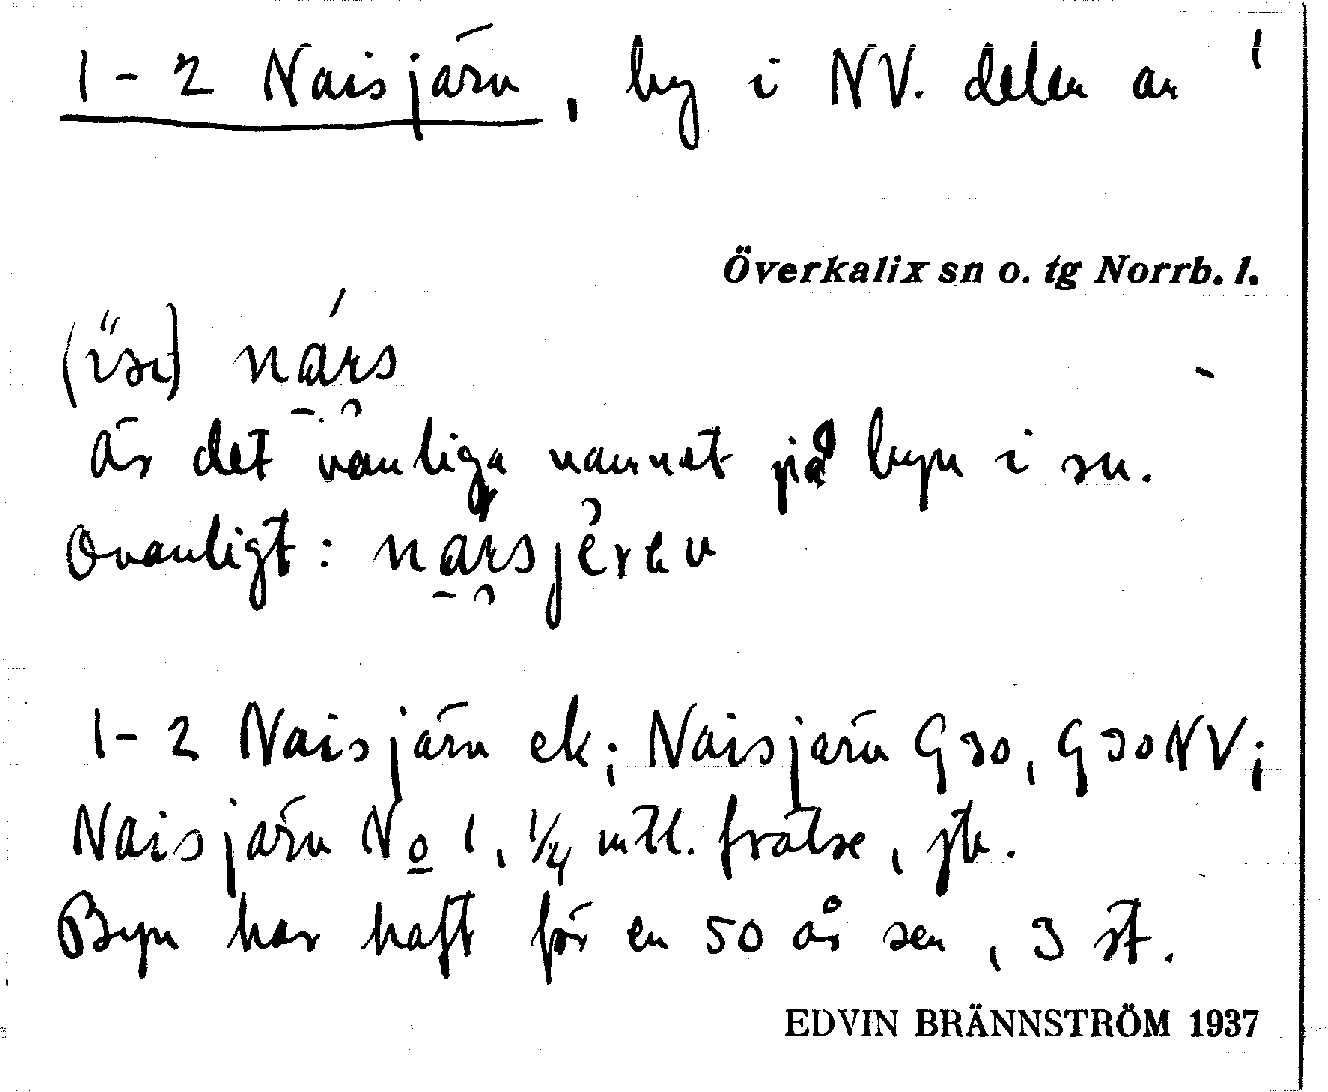 1-2 Naisjärv, by i NV. delen av 1
Överkalix sn o. tg Norrb. l.
nárs
är det vanliga namnet på byn i sn.
Ovanligt: nársjèrev
1-2 Naisjärv ek; Naisjärv G30, G30NV;
Naisjärv No 1, 1/4 mtl. frälse, jb.
Byn har haft för en 50 år sen, 3 st.
EDVIN BRÄNNSTRÖM 1937